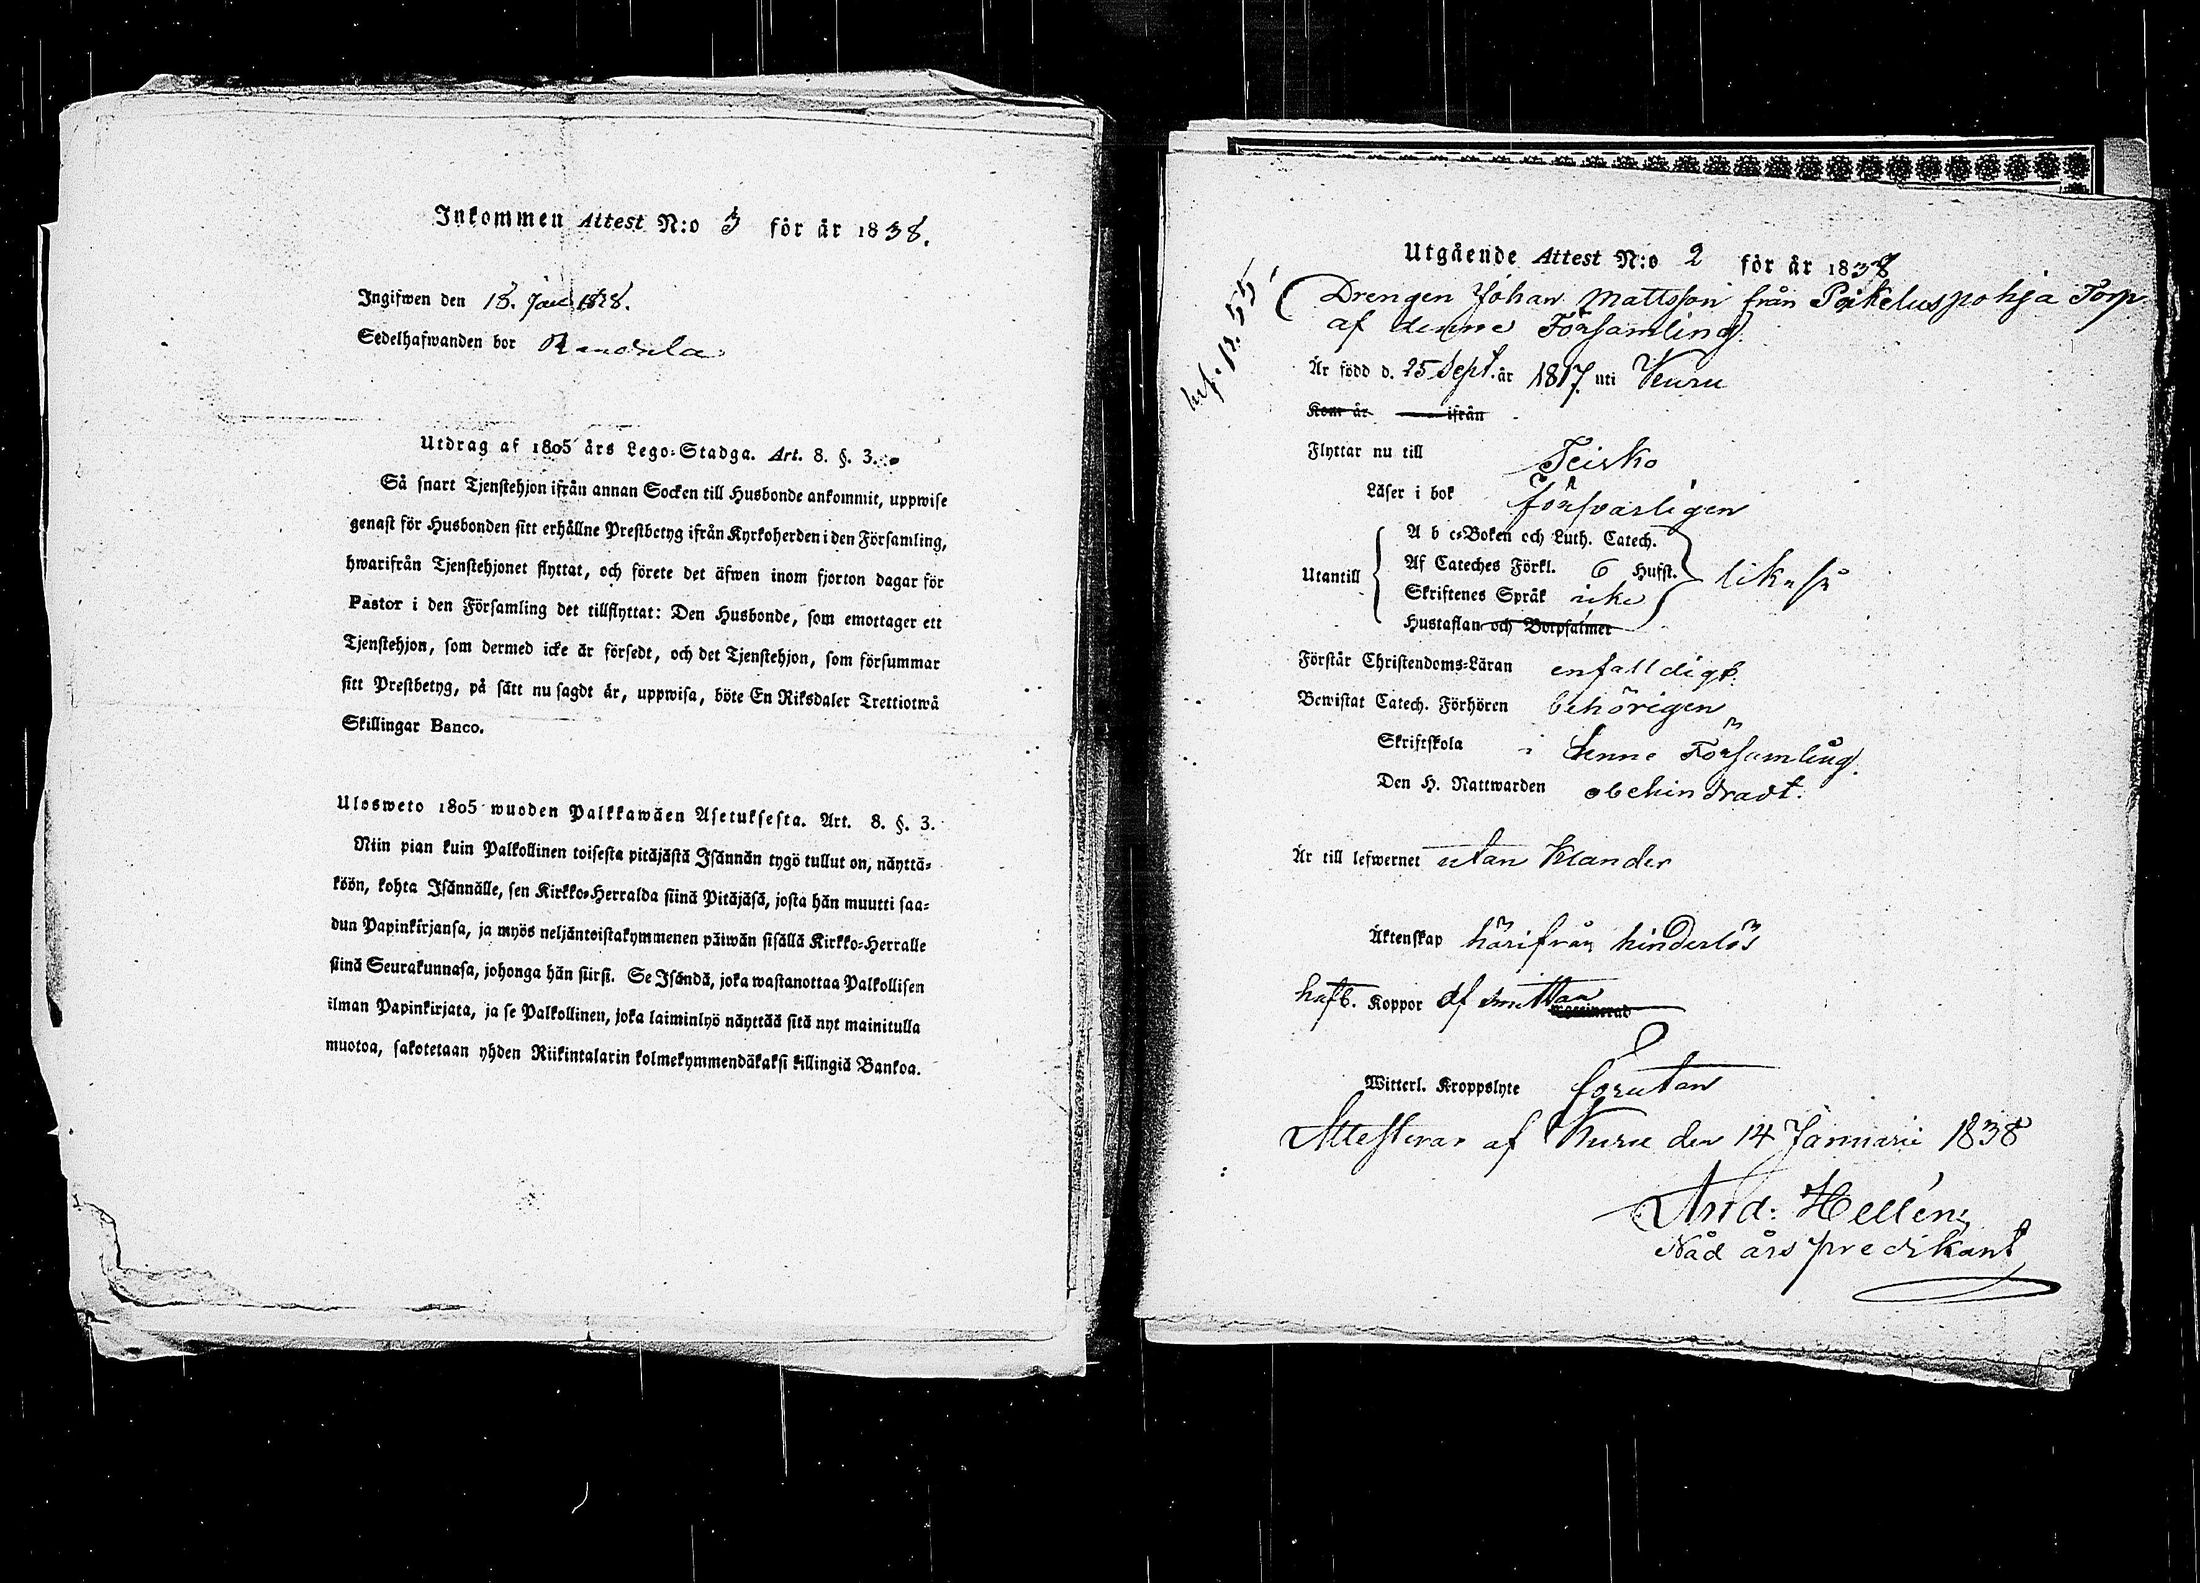 Inkommen Attest N:o 3 för år 1838.
Ingifwen den 18. Jan 1838.
Sedelhafwanden bor Randula
Utdrag af 1805 års Lego-Stadga. Art. 8. §. 3.
Så snart Tjenstehjon ifrån annan Socken till Husbonde ankommit, uppwise
genast för Husbonden sitt erhållne Prestbetyg ifrån Kyrkoherden i den Församling,
hwarifrån Tjenstehjonet flyttat, och förete det äfwen inom fjorton dagar för
Pastor i den Församling det tillflyttat: Den Husbonde, som emottager ett
Tjenstehjon, som dermed icke är försedt, och det Tjenstehjon, som försummar
sitt Prestbetyg, på sätt nu sagdt är, uppwisa, böte En Riksdaler Trettiotwå
Skillingar Banco.
Ulosweto 1805 wuoden Palkkawäen Asetuksesta. Art. 8. §. 3.
Niin pian kuin Palkollinen toisesta pitäjästä Isännän tygö tullut on, näyttä-
köön, kohta Isännälle, sen Kirkko-Herralda siinä Pitäjäsä, josta hän muutti saa-
dun Papinkirjansa, ja myös neljäntoistakymmenen päiwän sisällä Kirkko-Herralle
siinä Seurakunnasa, johonga hän siirsi. Se Isändä, joka wastanottaa Palkollisen
ilman Papinkirjata, ja se Palkollinen, joka laiminlyö näyttää sitä nyt mainitulla
muotoa, sakotetaan yhden Riikintalarin kolmekymmendäkaksi killingiä Bankoa.
Utgående Attest N:o 2 för år 1838
Drengen Johan Mattsson från Poikeluspohja Torp
af denne Församling.
Är född d. 25 Sept. år 1817. uti Kuru
Kom år ifrån
Flyttar nu till Teisko
Läser i bok försvarligen
A b c-Boken och Luth. Catech.
Utantill Af Cateches Förkl. 6 Hufst. likaså
Skriftenes Språk icke
Hustaflan och Botpsalmer
Förstår Christendoms-Läran enfalldigt.
Bewistat Catech. Förhören behörigen
Skriftskola i denne Församling.
Den H. Nattwarden obehindradt.
Är till lefwernet utan klander
Äktenskap härifrån hinderlös
haft. Koppor af smittan
Witterl. Kroppslyte förutan
Attesterar af Kuru den 14 Januarii 1838
And: Hellén
Nåd års predikant